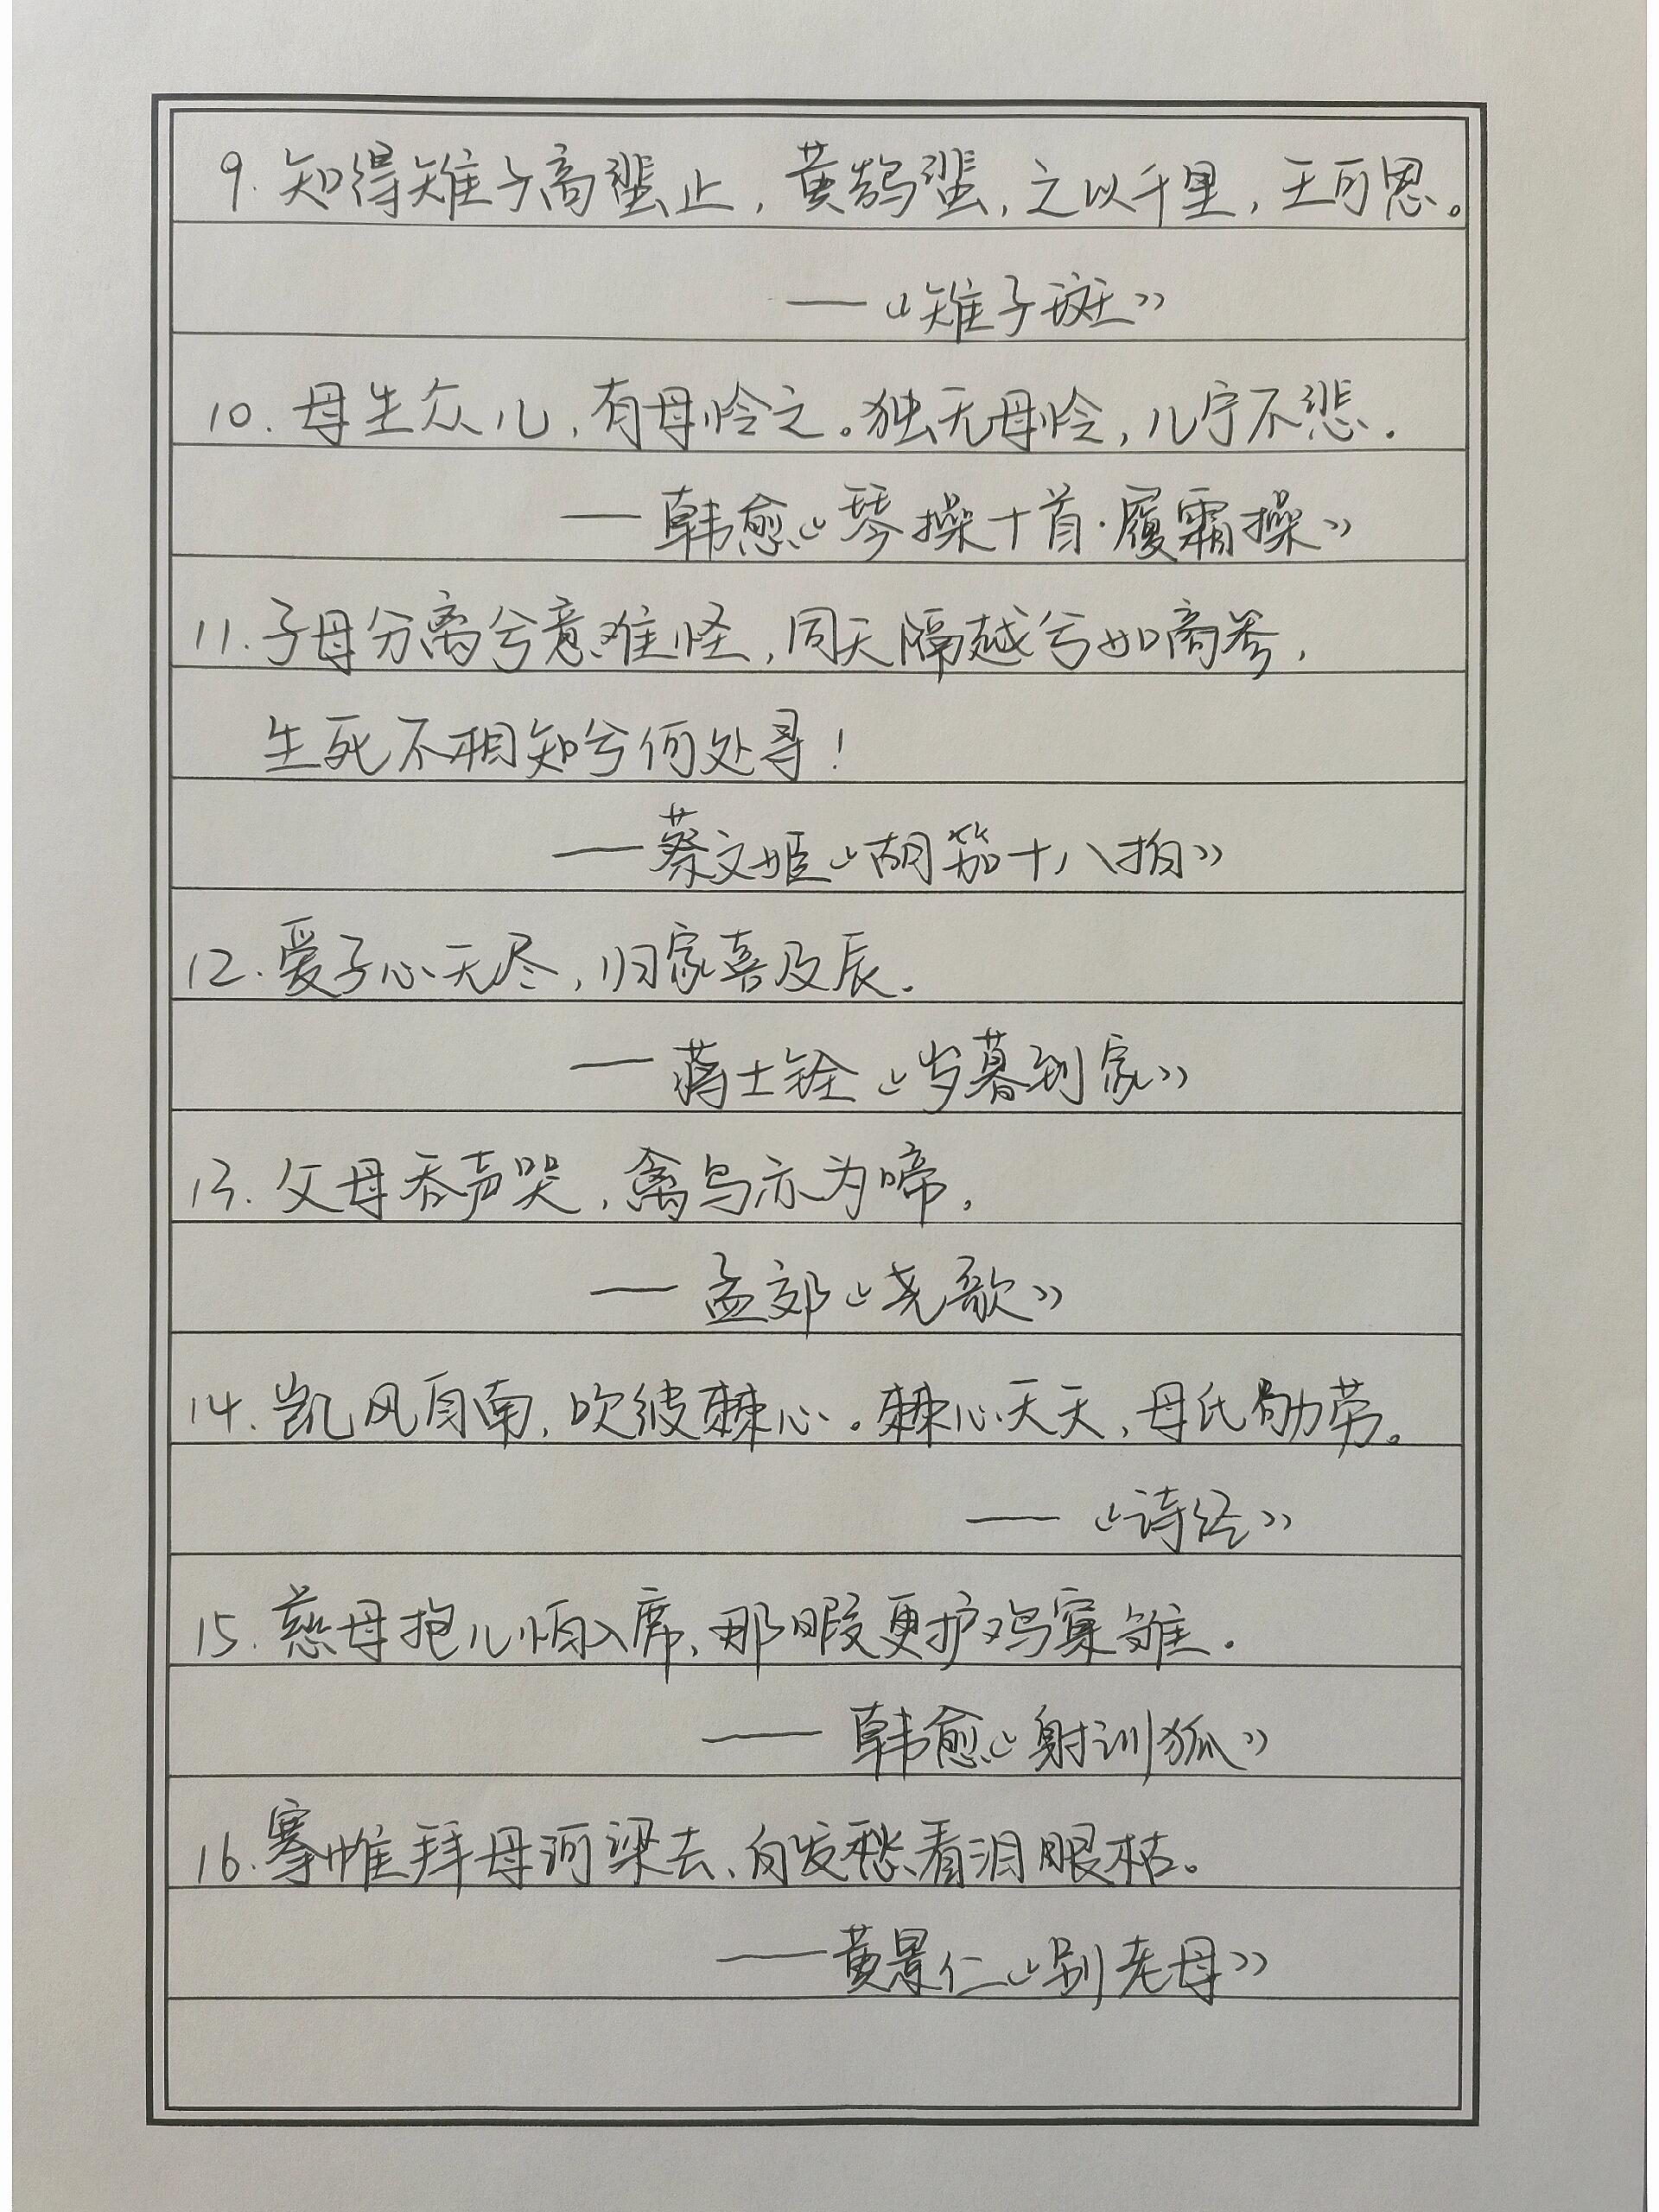 9. 知得雉子高蜚止,黄鹄蜚,之以千里,王可思。
——《雉子斑》
10. 母生众儿,有母怜之。独无母怜,儿宁不悲.
——韩愈《琴操十首·履霜操》
11. 子母分离兮意难怪,同天隔越兮如商参,
生死不相知兮何处寻!
——蔡文姬《胡笳十八拍》
12. 爱子心无尽,归家喜及辰.
——蒋士铨《岁暮到家》
13. 父母吞声哭,禽鸟亦为啼,
——孟郊《尧歌》
14. 凯风自南,吹彼棘心。棘心夭夭,母氏劬劳。
——《诗经》
15. 慈母抱儿怕入席,那暇更护鸡窠雏.
——韩愈《射训狐》
16. 搴帷拜母河梁去,白发愁看泪眼枯。
——黄景仁《别老母》